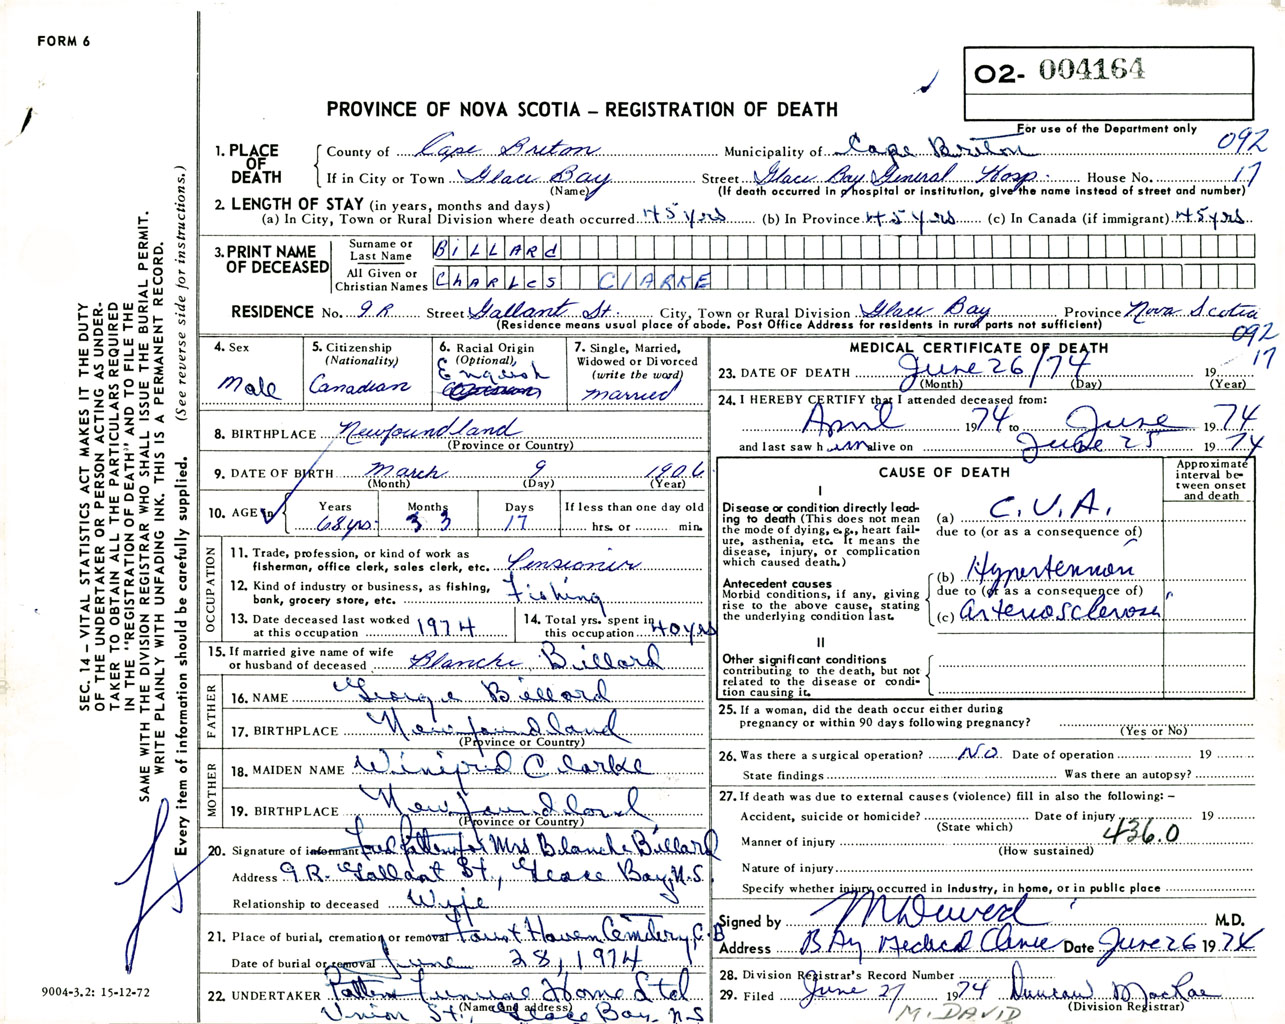 FORM 6
O2- 004164
PROVINCE OF NOVA SCOTIA – REGISTRATION OF DEATH
For use of the Department only
092
17
1. PLACE OF DEATH
County of Cape Breton Municipality of Cape Breton
If in City or Town Glace Bay Street Glace Bay General Hosp. House No.
(Name) (If death occurred in hospital or institution, give the name instead of street and number)
2. LENGTH OF STAY (in years, months and days)
(a) In City, Town or Rural Division where death occurred 45 yrs (b) In Province 45 yrs (c) In Canada (if immigrant) 45 yrs.
3. PRINT NAME OF DECEASED
Surname or Last Name BiLLARd
All Given or Christian Names ChARLes CLARKE
RESIDENCE No. 9R Street Gallant St. City, Town or Rural Division Glace Bay Province Nova Scotia
(Residence means usual place of abode. Post Office Address for residents in rural parts not sufficient)
092
17
4. Sex
Male
5. Citizenship
(Nationality)
Canadian
6. Racial Origin
(Optional)
English
7. Single, Married,
Widowed or Divorced
(write the word)
Married
8. BIRTHPLACE Newfoundland
(Province or Country)
9. DATE OF BIRTH March 9 1906
(Month) (Day) (Year)
10. AGE Years Months Days If less than one day old
68 yrs. 3 3 17 hrs. or min.
OCCUPATION
11. Trade, profession, or kind of work as
fisherman, office clerk, sales clerk, etc. Pensioner
12. Kind of industry or business, as fishing,
bank, grocery store, etc. Fishing
13. Date deceased last worked
at this occupation 1974
14. Total yrs. spent in
this occupation 40 yrs
15. If married give name of wife
or husband of deceased Blanche Billard
FATHER
16. NAME George Billard
17. BIRTHPLACE Newfoundland
(Province or Country)
MOTHER
18. MAIDEN NAME Winifrid Clarke
19. BIRTHPLACE Newfoundland
(Province or Country)
20. Signature of informant Fred Patten for Mrs Blanche Billard
Address 9 R. Gallant St., Glace Bay, N.S.
Relationship to deceased Wife
21. Place of burial, cremation or removal Forest Haven Cemetery, C.B
Date of burial or removal June 28, 1974
22. UNDERTAKER Patten Funeral Home Ltd
(Name and address)
Union St., Glace Bay. N.S
MEDICAL CERTIFICATE OF DEATH
23. DATE OF DEATH June 26/74 19
(Month) (Day) (Year)
24. I HEREBY CERTIFY that I attended deceased from:
April 1974 to June 1974
and last saw him alive on June 25 1974
CAUSE OF DEATH
Approximate interval between onset and death
I
Disease or condition directly leading to death (This does not mean the mode of dying, e.g., heart failure, asthenia, etc. It means the disease, injury, or complication which caused death.)
(a) C.V.A.
due to (or as a consequence of)
Antecedent causes
Morbid conditions, if any, giving rise to the above cause, stating the underlying condition last.
(b) Hypertension
due to (or as a consequence of)
(c) arteriosclerosis
II
Other significant conditions
contributing to the death, but not related to the disease or condition causing it.
25. If a woman, did the death occur either during
pregnancy or within 90 days following pregnancy?
(Yes or No)
26. Was there a surgical operation? No Date of operation 19
State findings Was there an autopsy?
27. If death was due to external causes (violence) fill in also the following: –
Accident, suicide or homicide? Date of injury 19
(State which)
Manner of injury 436.0
(How sustained)
Nature of injury
Specify whether injury occurred in Industry, in home, or in public place
Signed by M.D.
Address Bay Medical Clinic Date June 26 1974
28. Division Registrar's Record Number
29. Filed June 27 1974 Duncan MacRae
(Division Registrar)
M. DAVID
SEC. 14 – VITAL STATISTICS ACT MAKES IT THE DUTY
OF THE UNDERTAKER OR PERSON ACTING AS UNDER-
TAKER TO OBTAIN ALL THE PARTICULARS REQUIRED
IN THE "REGISTRATION OF DEATH" AND TO FILE THE
SAME WITH THE DIVISION REGISTRAR WHO SHALL ISSUE THE BURIAL PERMIT.
WRITE PLAINLY WITH UNFADING INK. THIS IS A PERMANENT RECORD.
Every item of information should be carefully supplied. (See reverse side for instructions.)
9004-3.2: 15-12-72